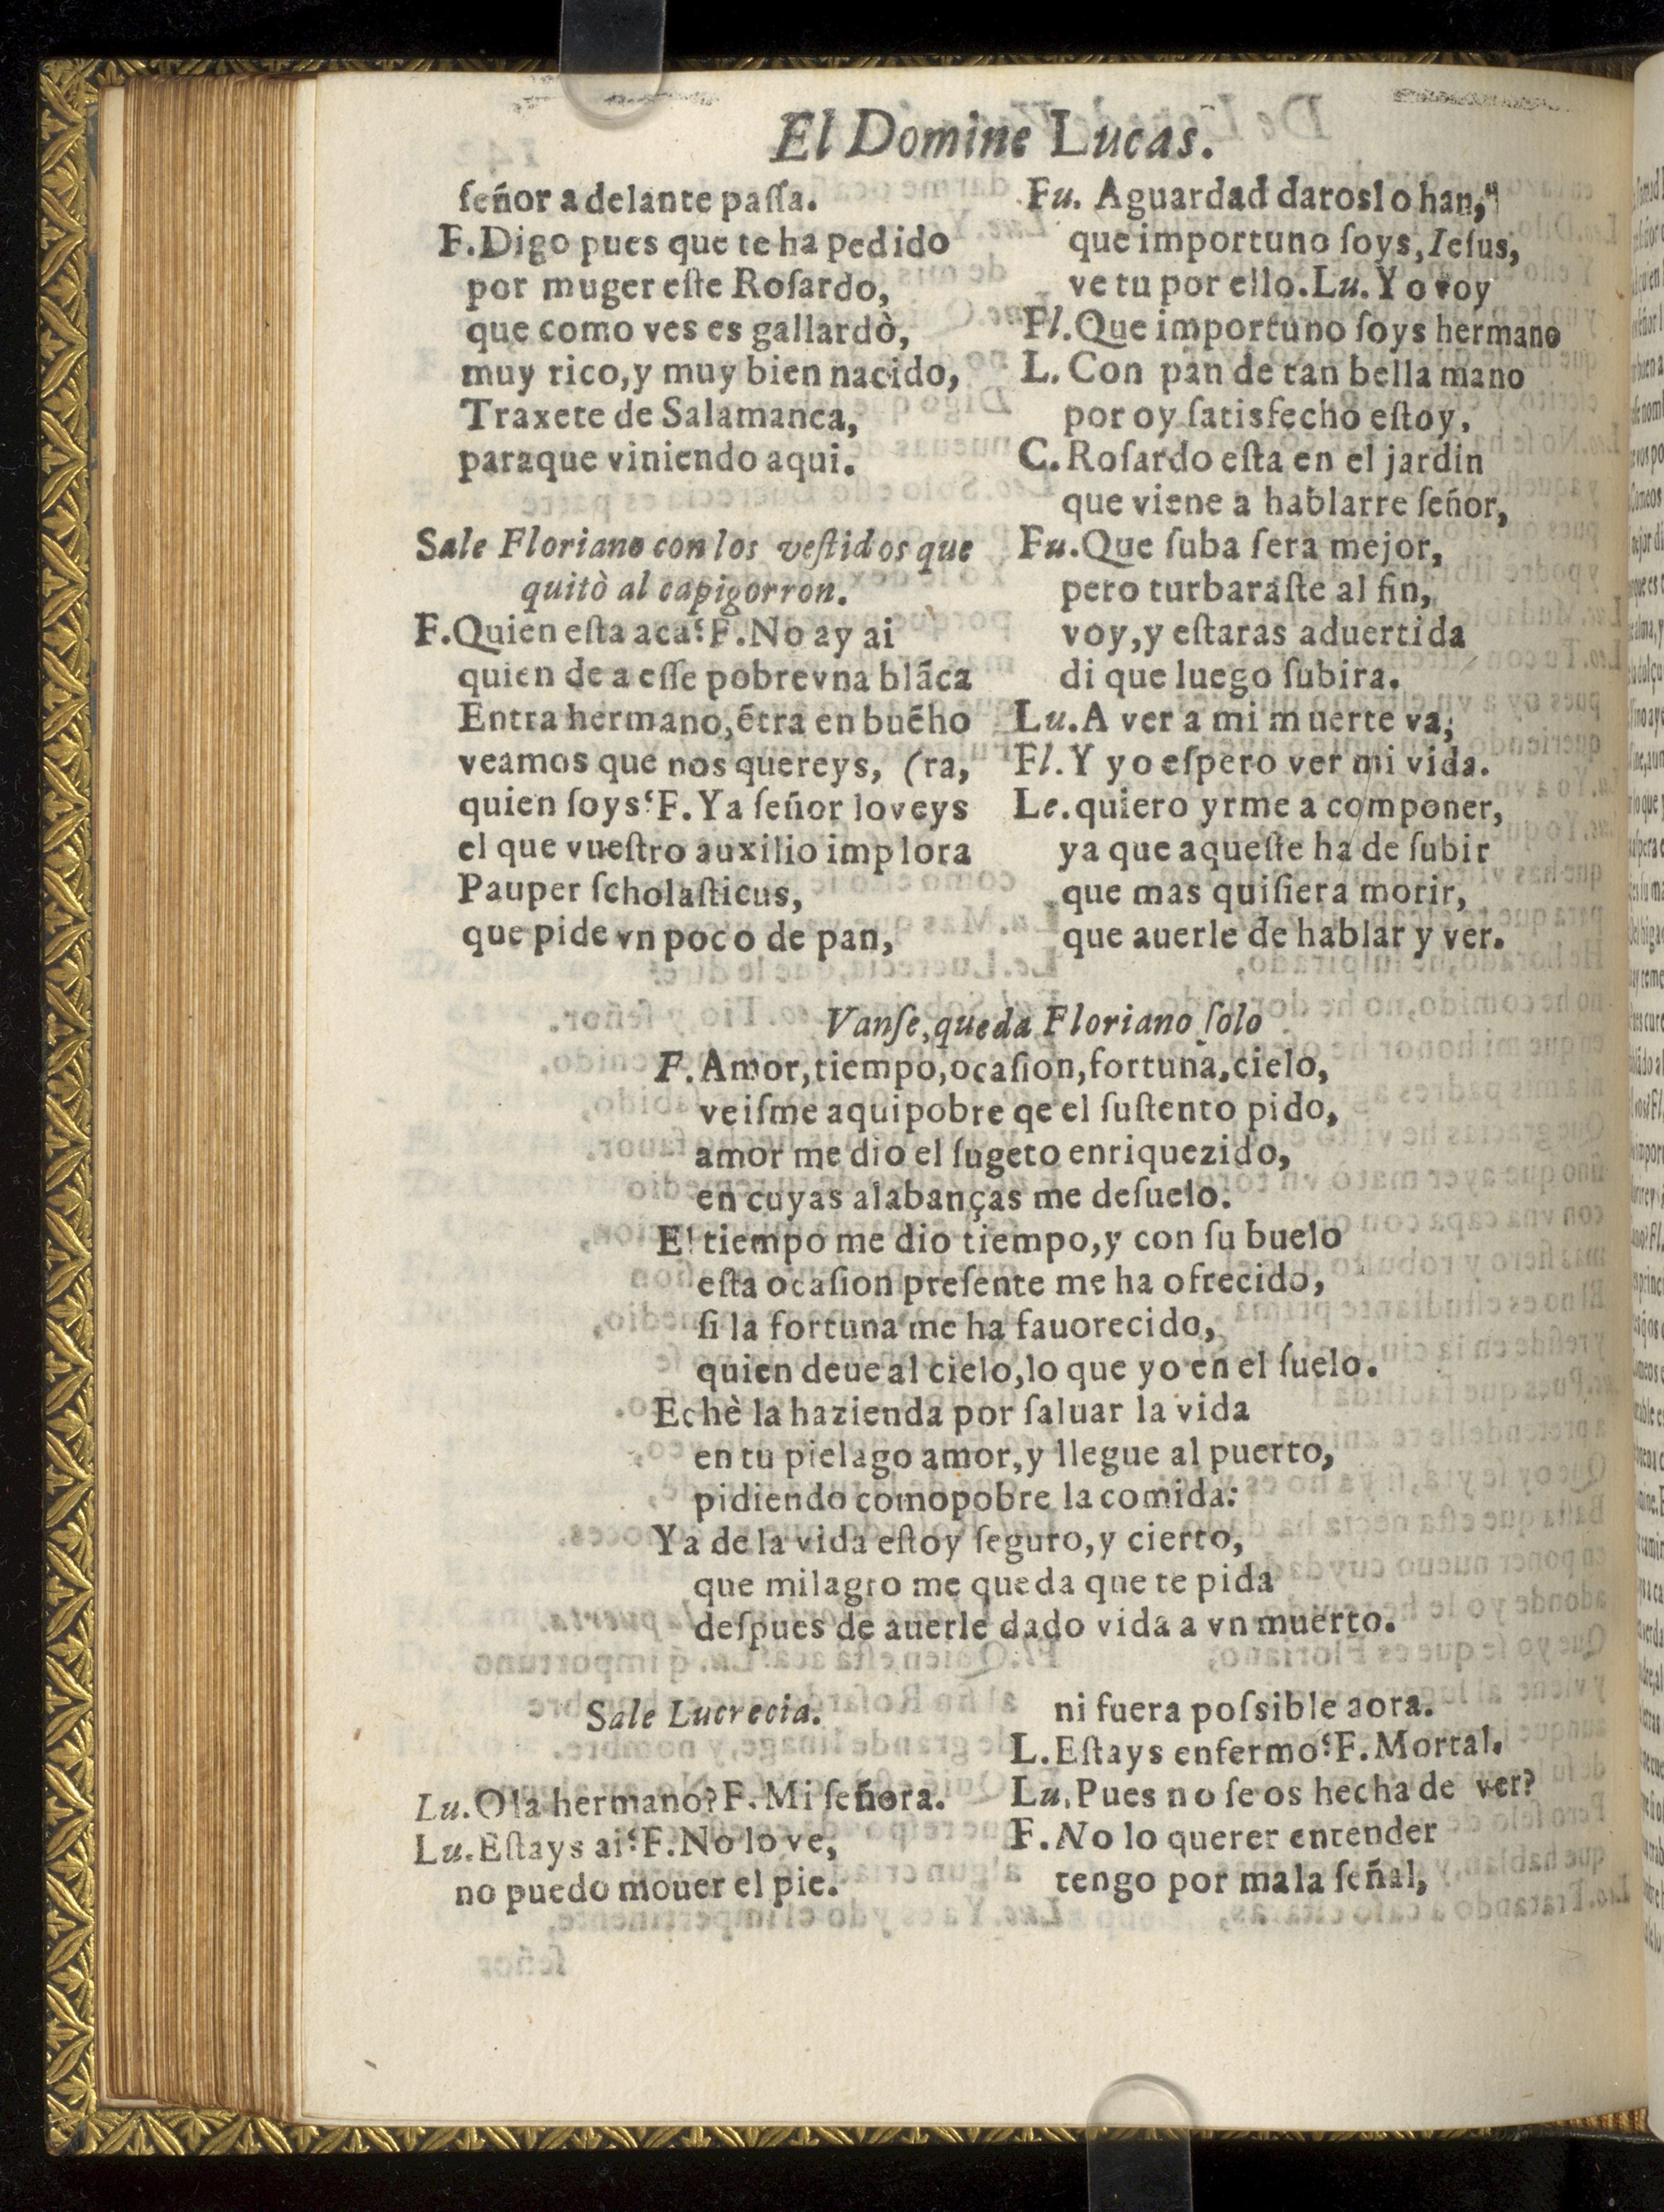 El Domine Lucas.
ſeñor adelante paſſa.
F.Digo pues que te ha pedido
por muger eſte Roſardo,
que como ves es gallardò,
muy rico,y muy bien nacido,
Traxete de Salamanca,
paraque viniendo aqui.
Sale Floriano con los veſtidos que
quitò al capigorron.
F.Quien eſta aca? F.No ay ai
quien de a eſſe pobre vna blãca
Entra hermano,ẽtra en buẽ ho
veamos que nos quereys, (ra,
quien ſoys? F.Ya ſeñor lo veys
el que vueſtro auxilio implora
Pauper ſcholaſticus,
que pide vn poco de pan,
Fu. Aguardad daroslo han,
que importuno ſoys, Ieſus,
ve tu por ello. Lu. Yo voy
Fl.Que importuno ſoys hermano
L. Con pan de tan bella mano
por oy ſatisfecho eſtoy.
C.Roſardo eſta en el jardin
que viene a hablarre ſeñor,
Fu.Que ſuba ſera mejor,
pero turbaraſte al fin,
voy,y eſtaras aduertida
di que luego ſubira.
Lu.A ver a mi muerte va,
Fl.Y yo eſpero ver mi vida.
Le.quiero yrme a componer,
ya que aqueſte ha de ſubir
que mas quiſiera morir,
que auerle de hablar y ver.
Vanſe,queda Floriano ſolo
F.Amor,tiempo,ocaſion,fortuna,cielo,
veiſme aqui pobre qe el ſuſtento pido,
amor me dio el ſugeto enriquezido,
en cuyas alabanças me deſuelo.
El tiempo me dio tiempo,y con ſu buelo
eſta ocaſion preſente me ha ofrecido,
ſi la fortuna me ha fauorecido,
quien deue al cielo,lo que yo en el ſuelo.
Echè la hazienda por ſaluar la vida
en tu pielago amor,y llegue al puerto,
pidiendo como pobre la comida:
Ya de la vida eſtoy ſeguro,y cierto,
que milagro me queda que te pida
deſpues de auerle dado vida a vn muerto.
Sale Lucrecia.
Lu.Ola hermano? F.Mi ſeñora.
Lu.Eſtays ai? F.No lo ve,
no puedo mouer el pie.
ni fuera poſsible aora.
L.Eſtays enfermo? F.Mortal.
Lu.Pues no ſe os hecha de ver?
F.No lo querer entender
tengo por mala ſeñal,